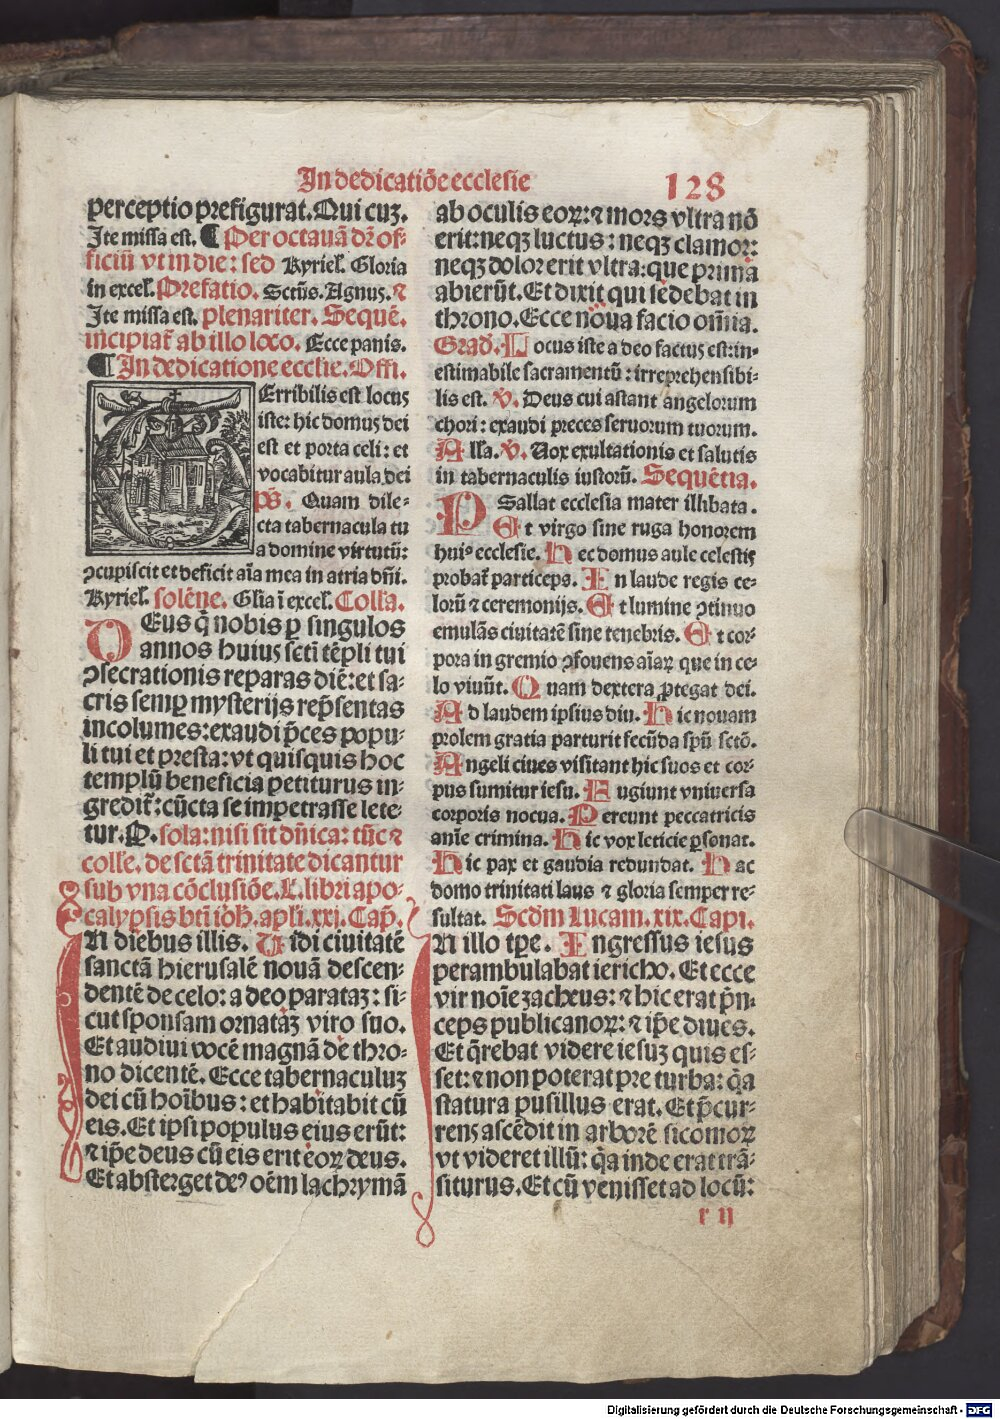 In dedicatiōe ecclesie
128
perceptio prefigurat. Qui cuꝫ.
Ite missa est. ¶ Per octauā dr̄ of-
ficiū vt in die: sed Kyriel̄. Gloria
in excel̄. Prefatio. Sctūs. Agnus. ⁊
Ite missa est. plenariter. Sequē.
incipiat̄ ab illo loco. Ecce panis.
¶ In dedicatione ecclie. Offi.
TErribilis est locus
iste: hic domus dei
est et porta celi: et
vocabitur aula dei
pš. Quam dile-
cta tabernacula tu
a domine virtutū:
ꝯcupiscit et deficit aīa mea in atria dn̄i.
Kyriel̄. solēne. Glīa ī excel̄. Coll'a.
DEus q̄ nobis ꝑ singulos
annos huius sctī tēpli tui
ꝯsecrationis reparas diē: et sa-
cris semꝑ mysterijs rep̄sentas
incolumes: exaudi p̄ces popu-
li tui et presta: vt quisquis hoc
templū beneficia petiturus in-
gredit̄: cūcta se impetrasse lete-
tur. P. sola: nisi sit dn̄ica: tūc ⁊
colle. de sctā trinitate dicantur
sub vna cōclusiōe. L. libri apo-
calypsis btī ioh̄. apl̄i. xxj. Cap̄.
IN diebus illis. Uidi ciuitatē
sanctā hierusalē nouā descen-
dentē de celo: a deo parataꝫ: si-
cut sponsam ornataꝫ viro suo.
Et audiui vocē magnā de thro-
no dicentē. Ecce tabernaculuꝫ
dei cū hoībus: et habitabit cū
eis. Et ipsi populus eius erūt:
⁊ ip̄e deus cū eis erit eoꝝ deus.
Et absterget deꝰ oēm lachrymā
ab oculis eoꝝ: ⁊ mors vltra nō
erit: neqꝫ luctus: neqꝫ clamor:
neqꝫ dolor erit vltra: que prima
abierūt. Et dixit qui sedebat in
throno. Ecce noua facio om̄ia.
Grad̄. Locus iste a deo factus est: in-
estimabile sacramentū: irreprehensibi-
lis est. v̄. Deus cui astant angelorum
chori: exaudi preces seruorum tuorum.
Alla. v̄. Uox exultationis et salutis
in tabernaculis iustorū. Sequētia.
PSallat ecclesia mater illibata.
Et virgo sine ruga honorem
huiꝰ ecclesie. Hec domus aule celestis
probat̄ particeps. In laude regis ce-
lorū ⁊ ceremonijs. Et lumine ꝯtinuo
emulās ciuitatē sine tenebris. Et cor-
pora in gremio ꝯfouens aīaꝝ que in ce-
lo viuūt. Quam dextera ꝓtegat dei.
Ad laudem ipsius diu. Hic nouam
prolem gratia parturit fecūda spū sctō.
Angeli ciues visitant hic suos et cor-
pus sumitur iesu. Fugiunt vniuersa
corporis nocua. Pereunt peccatricis
anīe crimina. Hic vox leticie ꝑsonat.
Hic pax et gaudia redundat. Hac
domo trinitati laus ⁊ gloria semper re-
sultat. Scdm Lucam. xix. Capi.
IN illo tp̄e. Ingressus iesus
perambulabat iericho. Et ecce
vir noīe zacheus: ⁊ hic erat p̄n-
ceps publicanoꝝ: ⁊ ip̄e diues.
Et q̄rebat videre iesuꝫ quis es-
set: ⁊ non poterat pre turba: q̄a
statura pusillus erat. Et p̄cur-
rens ascēdit in arborē sicomoꝝ
vt videret illū: q̄a inde erat trā-
siturus. Et cū venisset ad locū:
r ij
Digitalisierung gefördert durch die Deutsche Forschungsgemeinschaft - DFG